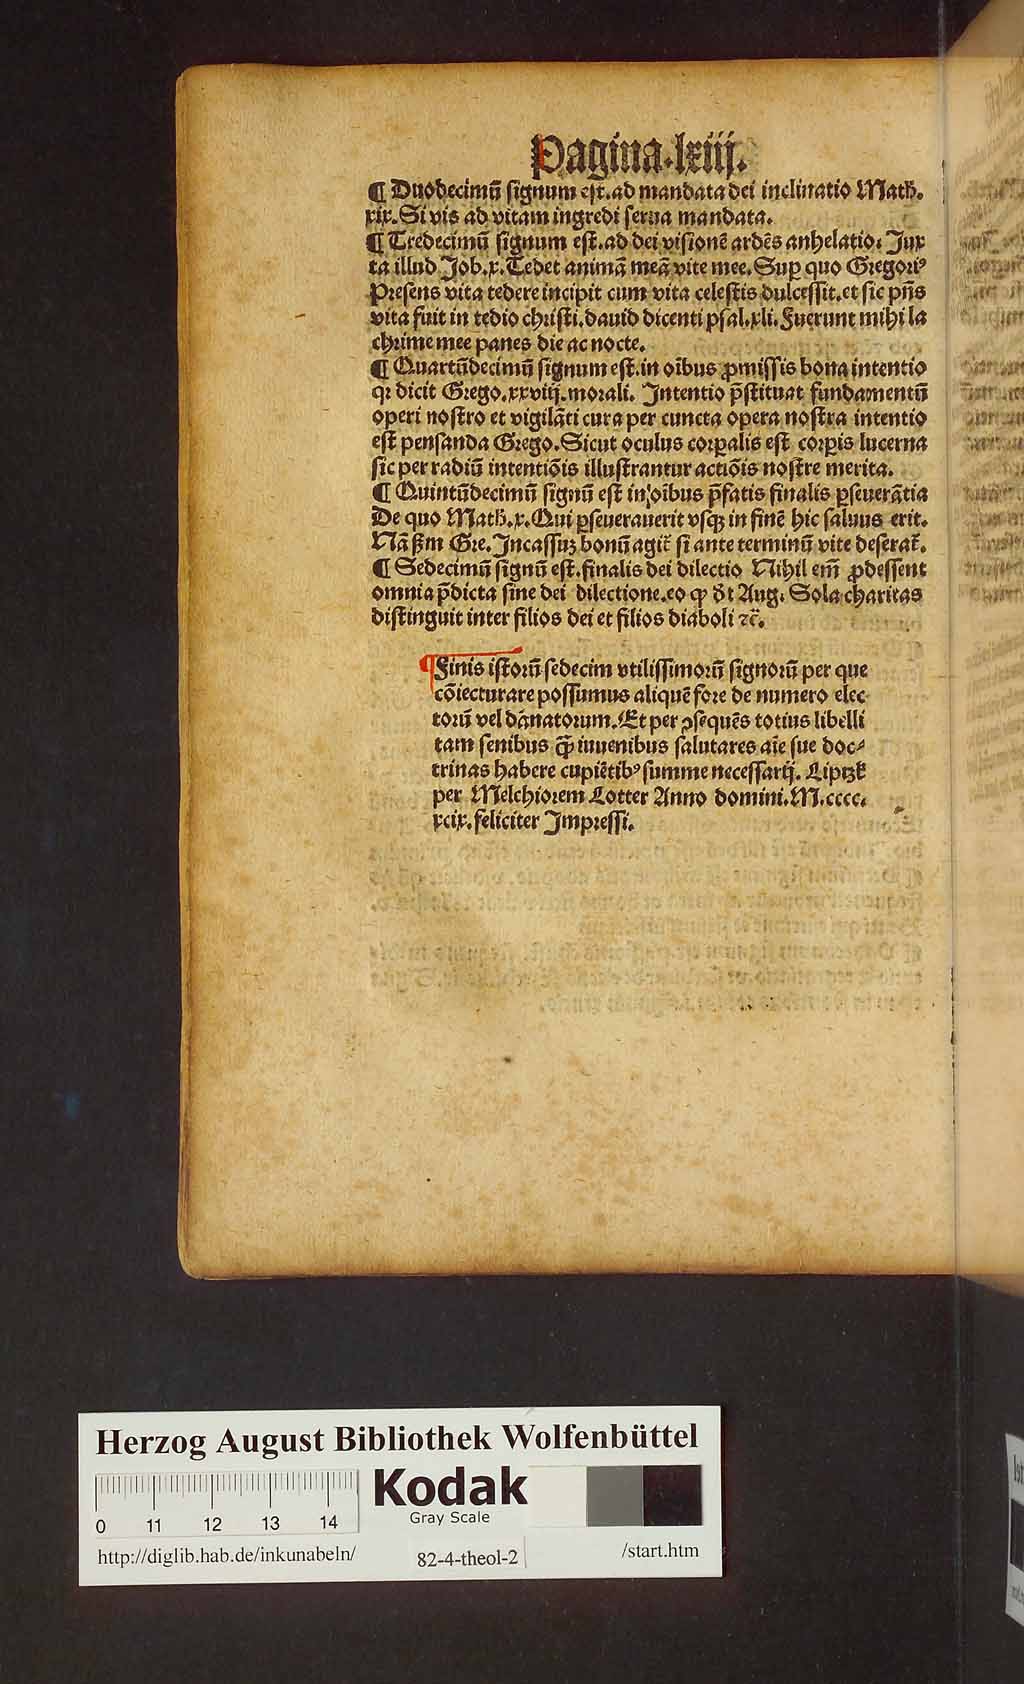 Pagina.lxiij.
¶ Duodecimū signum est. ad mandata dei inclinatio Math.
xix. Si vis ad vitam ingredi serua mandata.
¶ Tredecimū signum est. ad dei visionē ardēs anhelatio. Jux
ta illud Job.x. Tedet animā meā vite mee. Suꝑ quo Gregoriꝰ
Presens vita tedere incipit cum vita celestis dulcessit. et sic pn̄s
vita fuit in tedio christi. dauid dicenti psal.xli. Fuerunt mihi la
chrime mee panes die ac nocte.
¶ Quartūdecimū signum est. in oībus ꝓmissis bona intentio
qꝛ dicit Grego.xxviij. morali. Intentio p̄stituat fundamentū
operi nostro et vigilāti cura per cuncta opera nostra intentio
est pensanda Grego. Sicut oculus corꝑalis est corꝑis lucerna
sic per radiū intentiōis illustrantur actiōis nostre merita.
¶ Quintūdecimū signū est in oībus p̄fatis finalis ꝑseuerātia
De quo Math.x. Qui ꝑseuerauerit vsqꝫ in finē hic saluus erit.
Nā ẜm Gre. Incassuꝫ bonū agit̄ si ante terminū vite deserat̄.
¶ Sedecimū signū est. finalis dei dilectio Nihil em̄ ꝓdessent
omnia p̄dicta sine dei dilectione. eo ꝙ d̄t Aug. Sola charitas
distinguit inter filios dei et filios diaboli ⁊c̄.
¶ Finis istorū sedecim vtilissimorū signorū per que
cōiecturare possumus aliquē fore de numero elec
torū vel dānatorum. Et per ꝯsequēs totius libelli
tam senibus ꝙ̄ iuuenibus salutares aīe sue doc⸗
trinas habere cupiētibꝰ summe necessarij. Liptzk̄
per Melchiorem Lotter Anno domini. M.cccc.
xcix. feliciter Impressi.
Herzog August Bibliothek Wolfenbüttel
Kodak
Gray Scale
0 11 12 13 14
http://diglib.hab.de/inkunabeln/ 82-4-theol-2 /start.htm